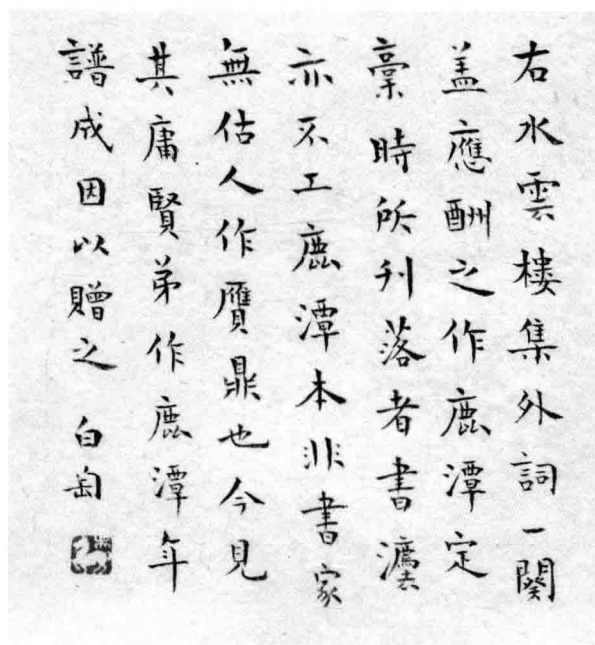 右水雲樓集外詞一闋
盖應酬之作鹿潭定
稾時所刊落者書灋
亦不工鹿潭本非書家
無估人作贋鼎也今見
其庸賢弟作鹿潭年
譜成因以贈之 白匋